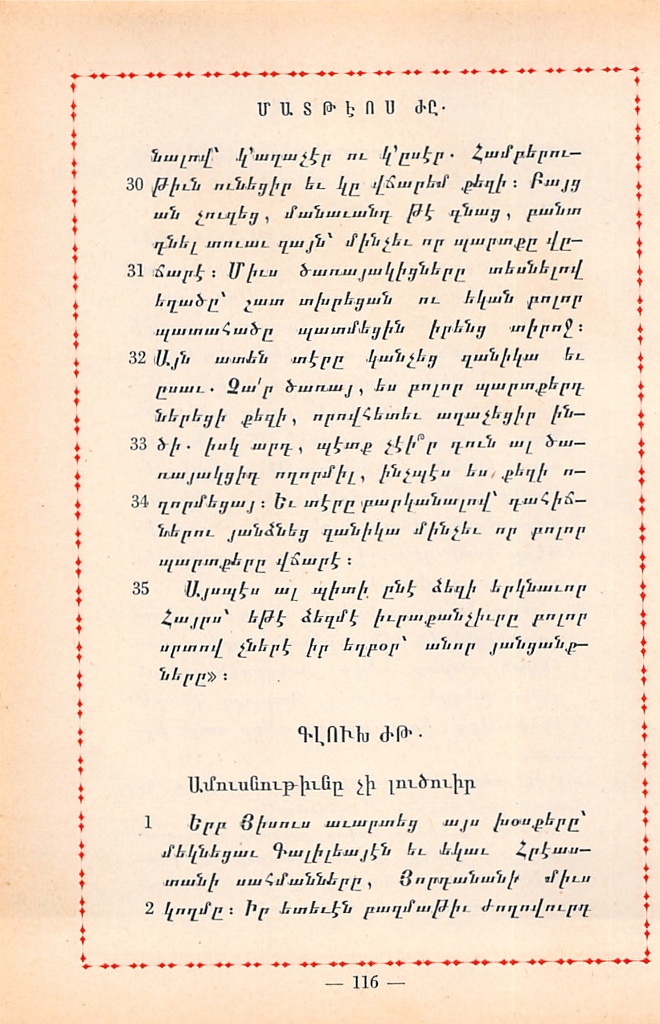 ՄԱՏԹԷՈՍ ԺԸ․
նալով՝ կ՚աղաչէր ու կ՚ըսէր․ Համբերու—
30 թիւն ունեցիր եւ կը վճարեմ քեզի։ Բայց
ան չուզեց, մանաւանդ թէ գնաց, բանտ
դնել տուաւ զայն՝ մինչեւ որ պարտքը վը—
31 ճարէ։ Միւս ծառայակիցները տեսնելով
եղածը՝ շատ տխրեցան ու եկան բոլոր
պատահածը պատմեցին իրենց տիրոջ։
32 Այն ատեն տէրը կանչեց զանիկա եւ
ըսաւ․ Չա՛ր ծառայ, ես բոլոր պարտքերդ
ներեցի քեզի, որովհետեւ աղաչեցիր ին—
33 ծի․ իսկ արդ, պէտք չէի՞ր դուն ալ ծա—
ռայակցիդ ողորմիլ, ինչպէս ես քեզի ո—
34 ղորմեցայ։ Եւ տէրը բարկանալով՝ դահիճ—
ներու յանձնեց զանիկա մինչեւ որ բոլոր
պարտքերը վճարէ։
35 Այսպէս ալ պիտի ընէ ձեզի երկնաւոր
Հայրս՝ եթէ ձեզմէ իւրաքանչիւրը բոլոր
սրտով չներէ իր եղբօր՝ անոր յանցանք—
ները»։
ԳԼՈՒԽ ԺԹ․
Ամուսնութիւնը չի լուծուիր
1 Երբ Յիսուս աւարտեց այս խօսքերը՝
մեկնեցաւ Գալիլեայէն եւ եկաւ Հրէաս—
տանի սահմանները, Յորդանանի միւս
2 կողմը։ Իր ետեւէն բազմաթիւ ժողովուրդ
— 116 —